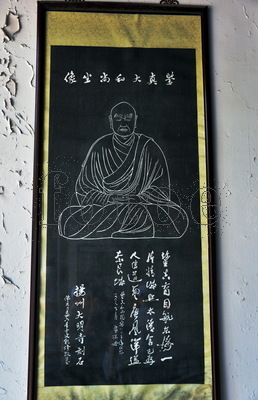 鑒真大和尚坐像
鑒真盲目航東海一
片精誠照太清舍己為
人傳道藝唐風洋溢
奈良城
揚州大明寺刻石